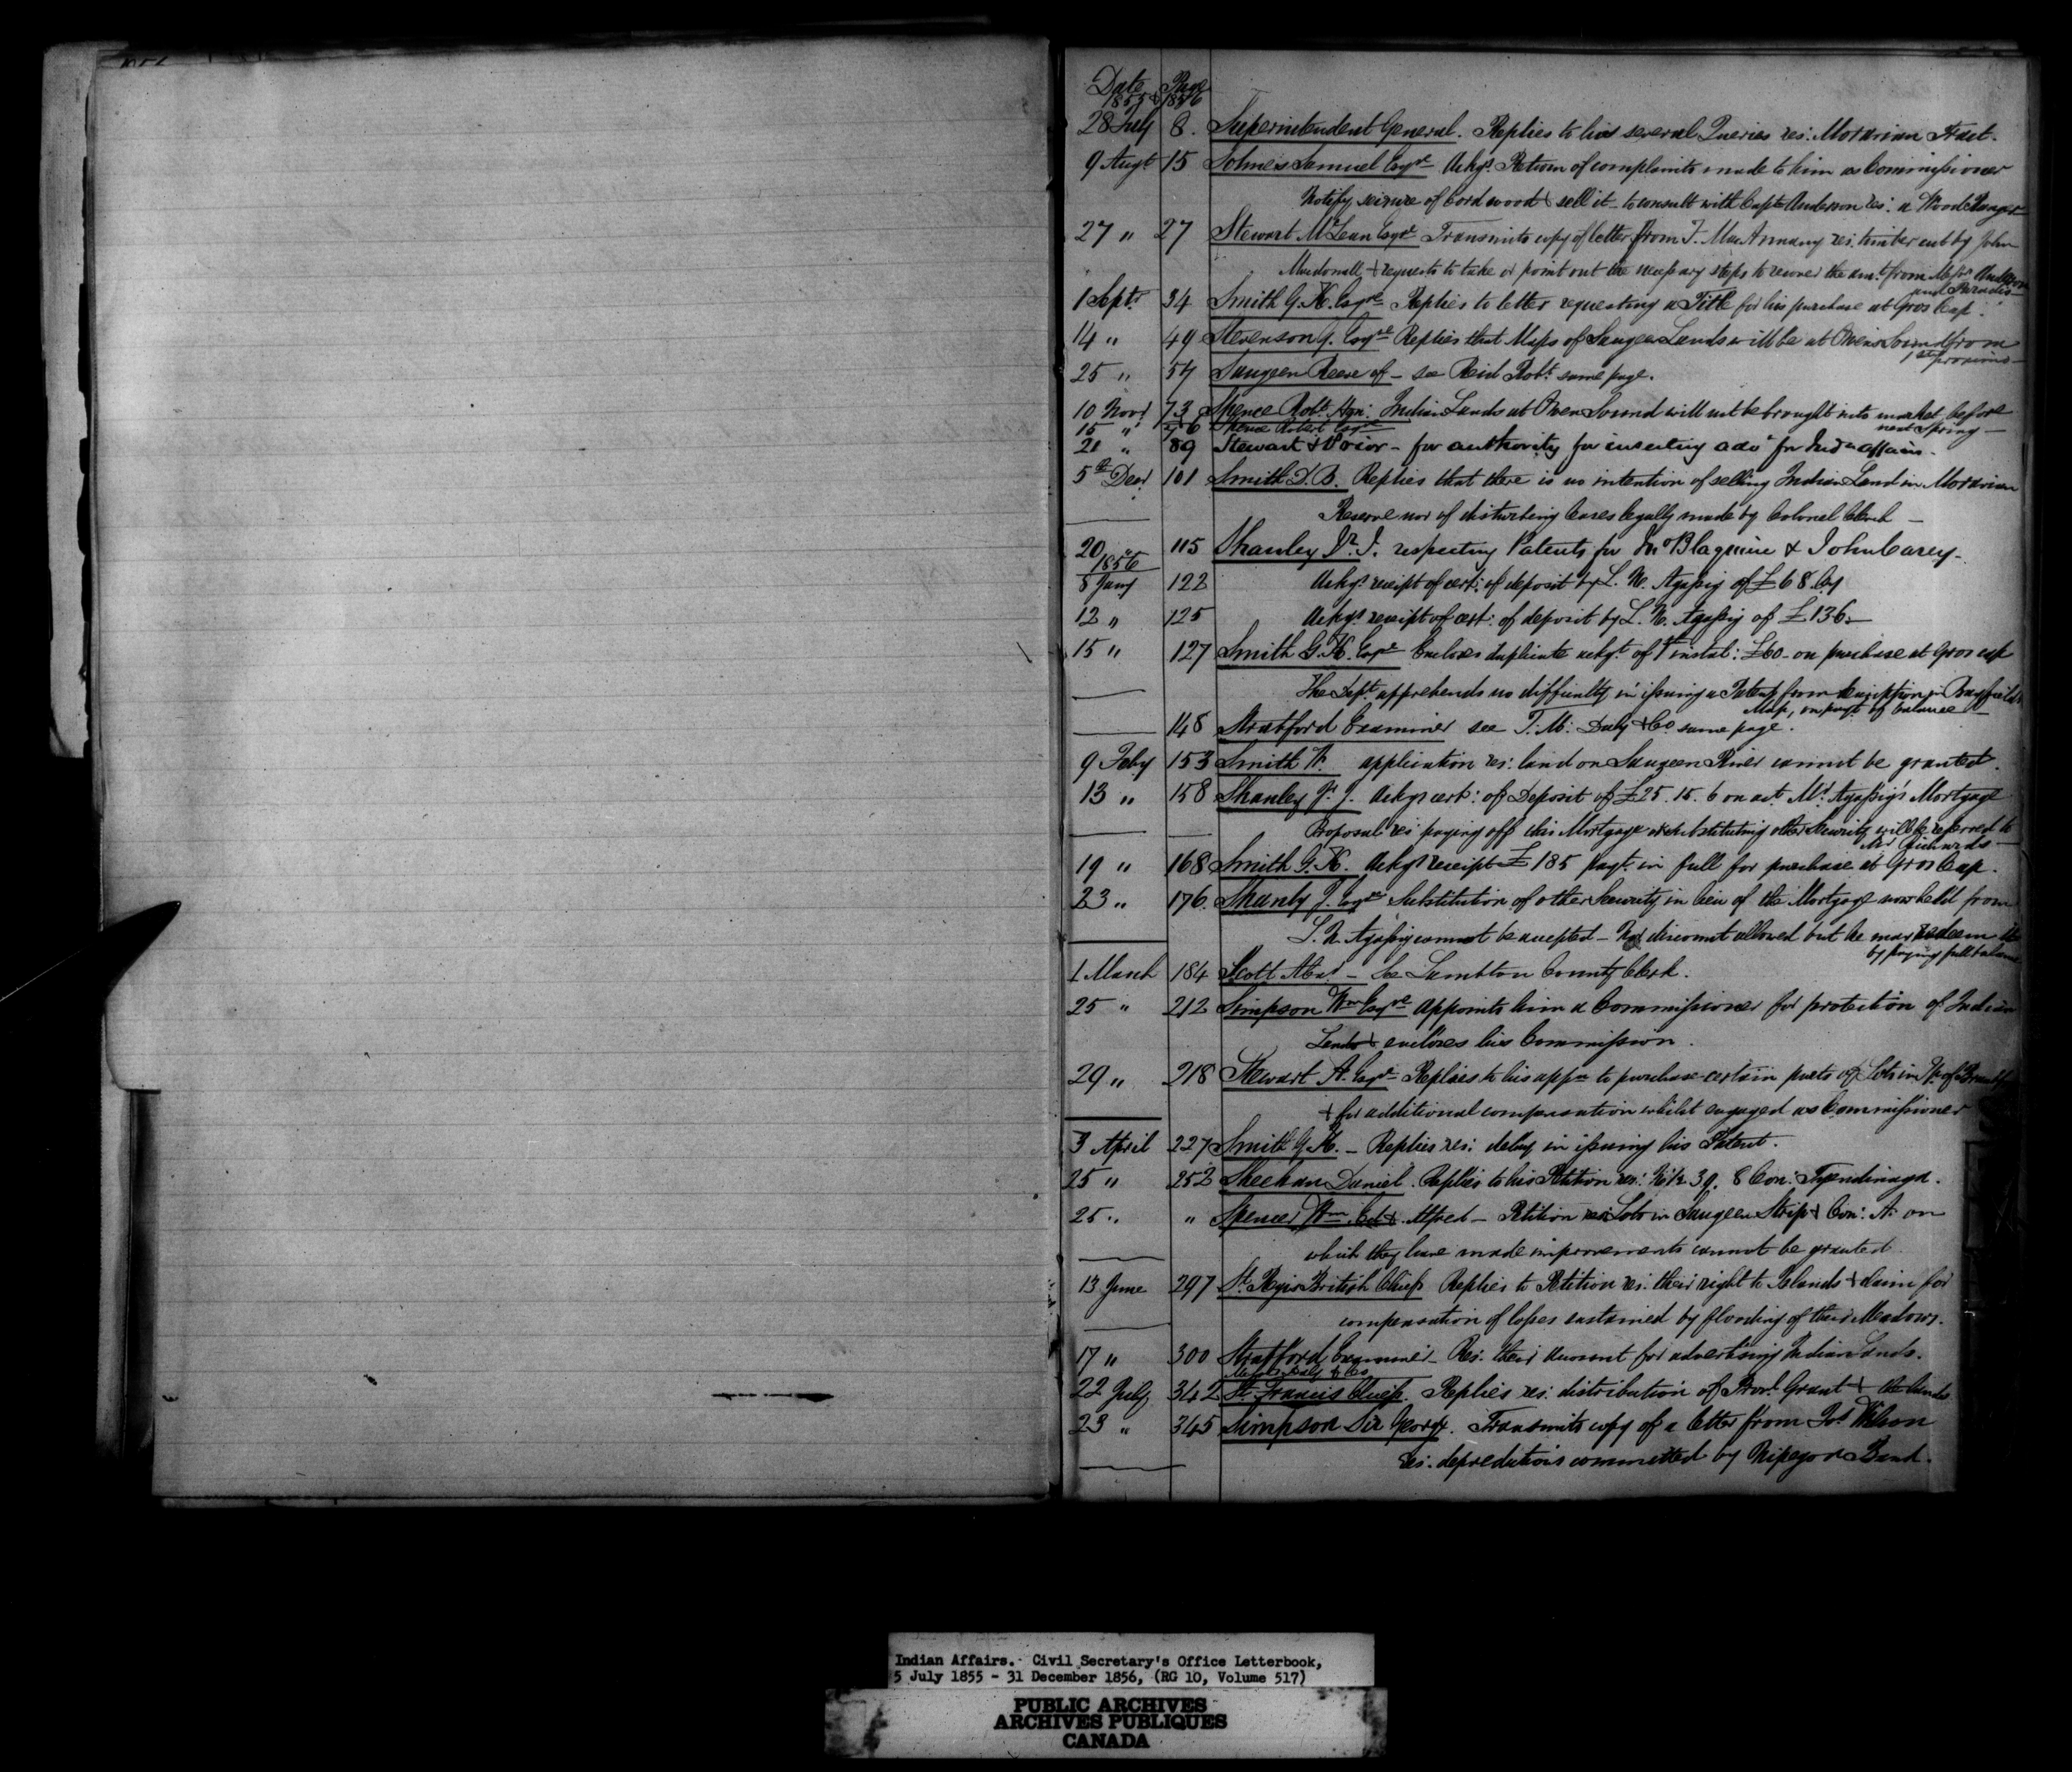 Date Page
1855 & 1856
28 July 8. Superintendent General. Replies to his several Queries res: Moravian Tract.
9 Augt 15 Solmes Samuel Esqre Ackgs. Return of complaints made to him as Commissioner
Notify seizure of Cord wood & sell it - to consult with Capt Anderson res: a Wood Ranger
27 " 27 Stewart McLean Esqre Transmits copy of letter from T. MacAnnany res. timber cut by John
Macdonell, & requests to take or point out the necessary steps to recover the amt. from Messrs Anderson
and Paradis
1 Septr 34 Smith G. K. Esqre Replies to letter requesting a Title for his purchase at Gros Cap.
14 " 49 Stevenson J. Esqre Replies that Maps of Saugeen Lands will be at Owen Sound from
1st proximo
25 " 57 Saugeen Reeve of - see Reid Robt. same page.
10 Novr 73 Spence Robt. Hon: Indian Lands at Owen Sound will not be brought into market before
next Spring -
15 " 76 Spence Robert Esqre
21 " 89 Stewart & Prior - for authority for inserting advt for Indn affairs.
5th Decr. 101 Smith D. B. Replies that there is no intention of selling Indian Land in Moravian
Reserve nor of disturbing Leases legally made by Colonel Clench -
20 " 115 Shanley Jr. J. respecting Patents for Blaquiere & John Carey -
1856
8 Jany 122 Ackgs receipt of cert: of deposit by L. N. Agassiz of £68
12 " 125 Ackgs receipt of cert: of deposit by L. N. Agassiz of £136.-
15 " 127 Smith G. K. Esqre Encloses duplicate ackgt. of 1st instal: £60 - on purchase at Gros cap
The Dept. apprehends no difficulty in issuing a Patent from description in Bayfield's
Map, on payt. of balance -
148 Stratford Examiner see T. M. Daly & Co same page.
9 Feby 153 Smith W. application res: land on Saugeen River cannot be granted.
13 " 158 Shanley Jr. J. Ackgs cert: of Deposit of £25. 15. 6 on act Mr. Agassiz's Mortgage
Proposal res: paying off this Mortgage & substituting other Security will be referred to
Mr Richards -
19 " 168 Smith G. K. Ackgs receipt £185 payt. in full for purchase at Gros Cap.
23 " 176. Shanly J. Esqre Substitution of other Security in lieu of the Mortgage now held from
L. N. Agassiz cannot be accepted - No discount allowed but he may redeem it
by paying full balance
1 March 184 Scott - See Lambton County Clerk.
25 " 212 Simpson Wm Esqre appoints him a Commissioner for protection of Indian
Lands & encloses his Commission.
29 " 218 Stewart A. Esqre - Replies to his appn to purchase certain parts of Lots in Tp of Brantford
& for additional compensation whilst engaged as Commissioner
3 April 227 Smith G. K. - Replies res: delay in issuing his Patent.
25 " 252 Sheehan Daniel. Replies to his Petition res: N 1/2 39. 8 Con: Tyendinaga.
25 " " Spencer Wm. & Alfred - Petition res: Lots in Saugeen Strip & Con: A. on
which they have made improvements cannot be granted.
13 June 297 St. Regis British Chiefs Replies to Petition res: their right to Islands & claim for
compensation of losses sustained by flooding of their Meadows.
17 " 300 Stratford Examiner - Res: their account for advertising Indian Lands.
Messrs Daly & Co
22 July 342 St. Francis Chiefs. Replies res: distribution of Provl Grant &
23 " 345 Simpson Sir George. Transmits copy of a letter from Jos Wilson
res: depredations committed by Nipegon Band.
Indian Affairs. Civil Secretary's Office Letterbook,
5 July 1855 - 31 December 1856, (RG 10, Volume 517)
PUBLIC ARCHIVES
ARCHIVES PUBLIQUES
CANADA